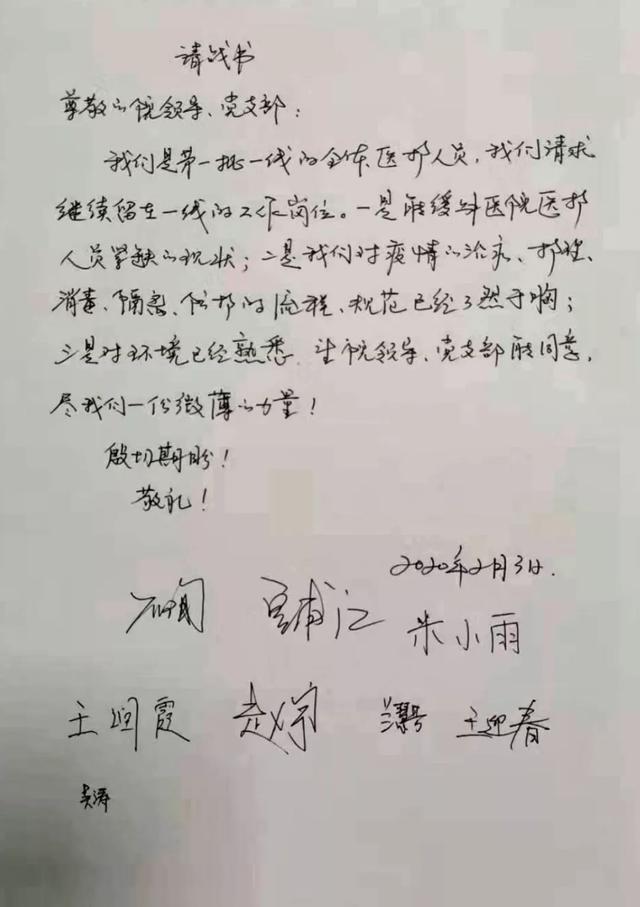 请战书
尊敬的院领导、党支部：
我们是第一批一线的全体医护人员，我们请求
继续留在一线的工作岗位。一是能缓解医院医护
人员紧缺的现状；二是我们对疫情的治疗、护理、
消毒、隔离、防护的流程、规范已经了然于胸；
三是对环境已经熟悉。望院领导、党支部能同意，
尽我们一份微薄的力量！
殷切期盼！
敬礼！
2020年2月3日.
朱小雨
王润霞 王迎春
吴涛